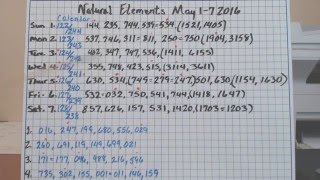 Natural Elements May 1-7 2016
Calendar
Sun 1. 122/244 144, 235, 744, 539=539, (1521, 1405)
Mon 2. 123/243 537, 746, 311=811, 250=750 (1904, 3158)
Tue 3. 124/242 402, 347, 797, 536, (1411, 6155)
Wed 4. 125/241 355, 798, 423, 515, (3114, 3661)
Thur 5. 126/240 630, 534, (749=279=247) 501, 630, (1154, 1630)
Fri 6. 127/239 532=032, 750, 541, 744, (1418, 1647)
Sat. 7. 128/238 857, 626, 157, 531, 1420, (1703=1203)
1. 016, 247, 199, 680, 556, 029
2. 260, 691, 119, 149, 699, 021
3. 171=177, 096, 989, 216, 596
4. 735, 302, 155, 001=011, 146, 159